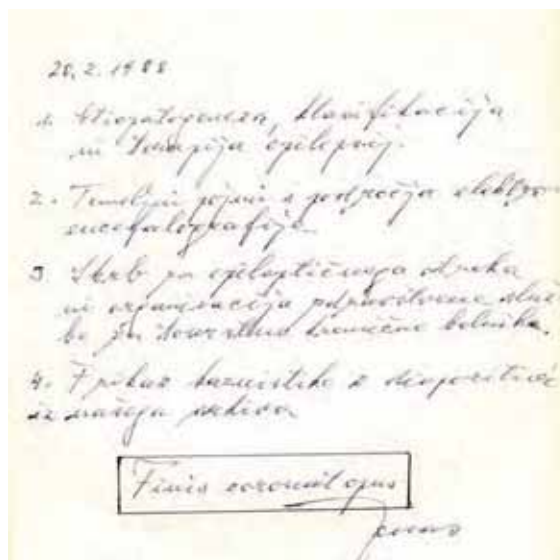 20.2.1988
1. Etiopatogeneza, klasifikacija
in terapija epilepsij.
2. Temeljni pojmi s področja elektro
encefalografije
3 Skrb za epileptičnega otroka
in organizacija zdravstvene služ
be za tovrstne kronične bolnike.
4. Prikaz kazuistike z diapozitivi
iz našega arhiva
Finis coronat opus